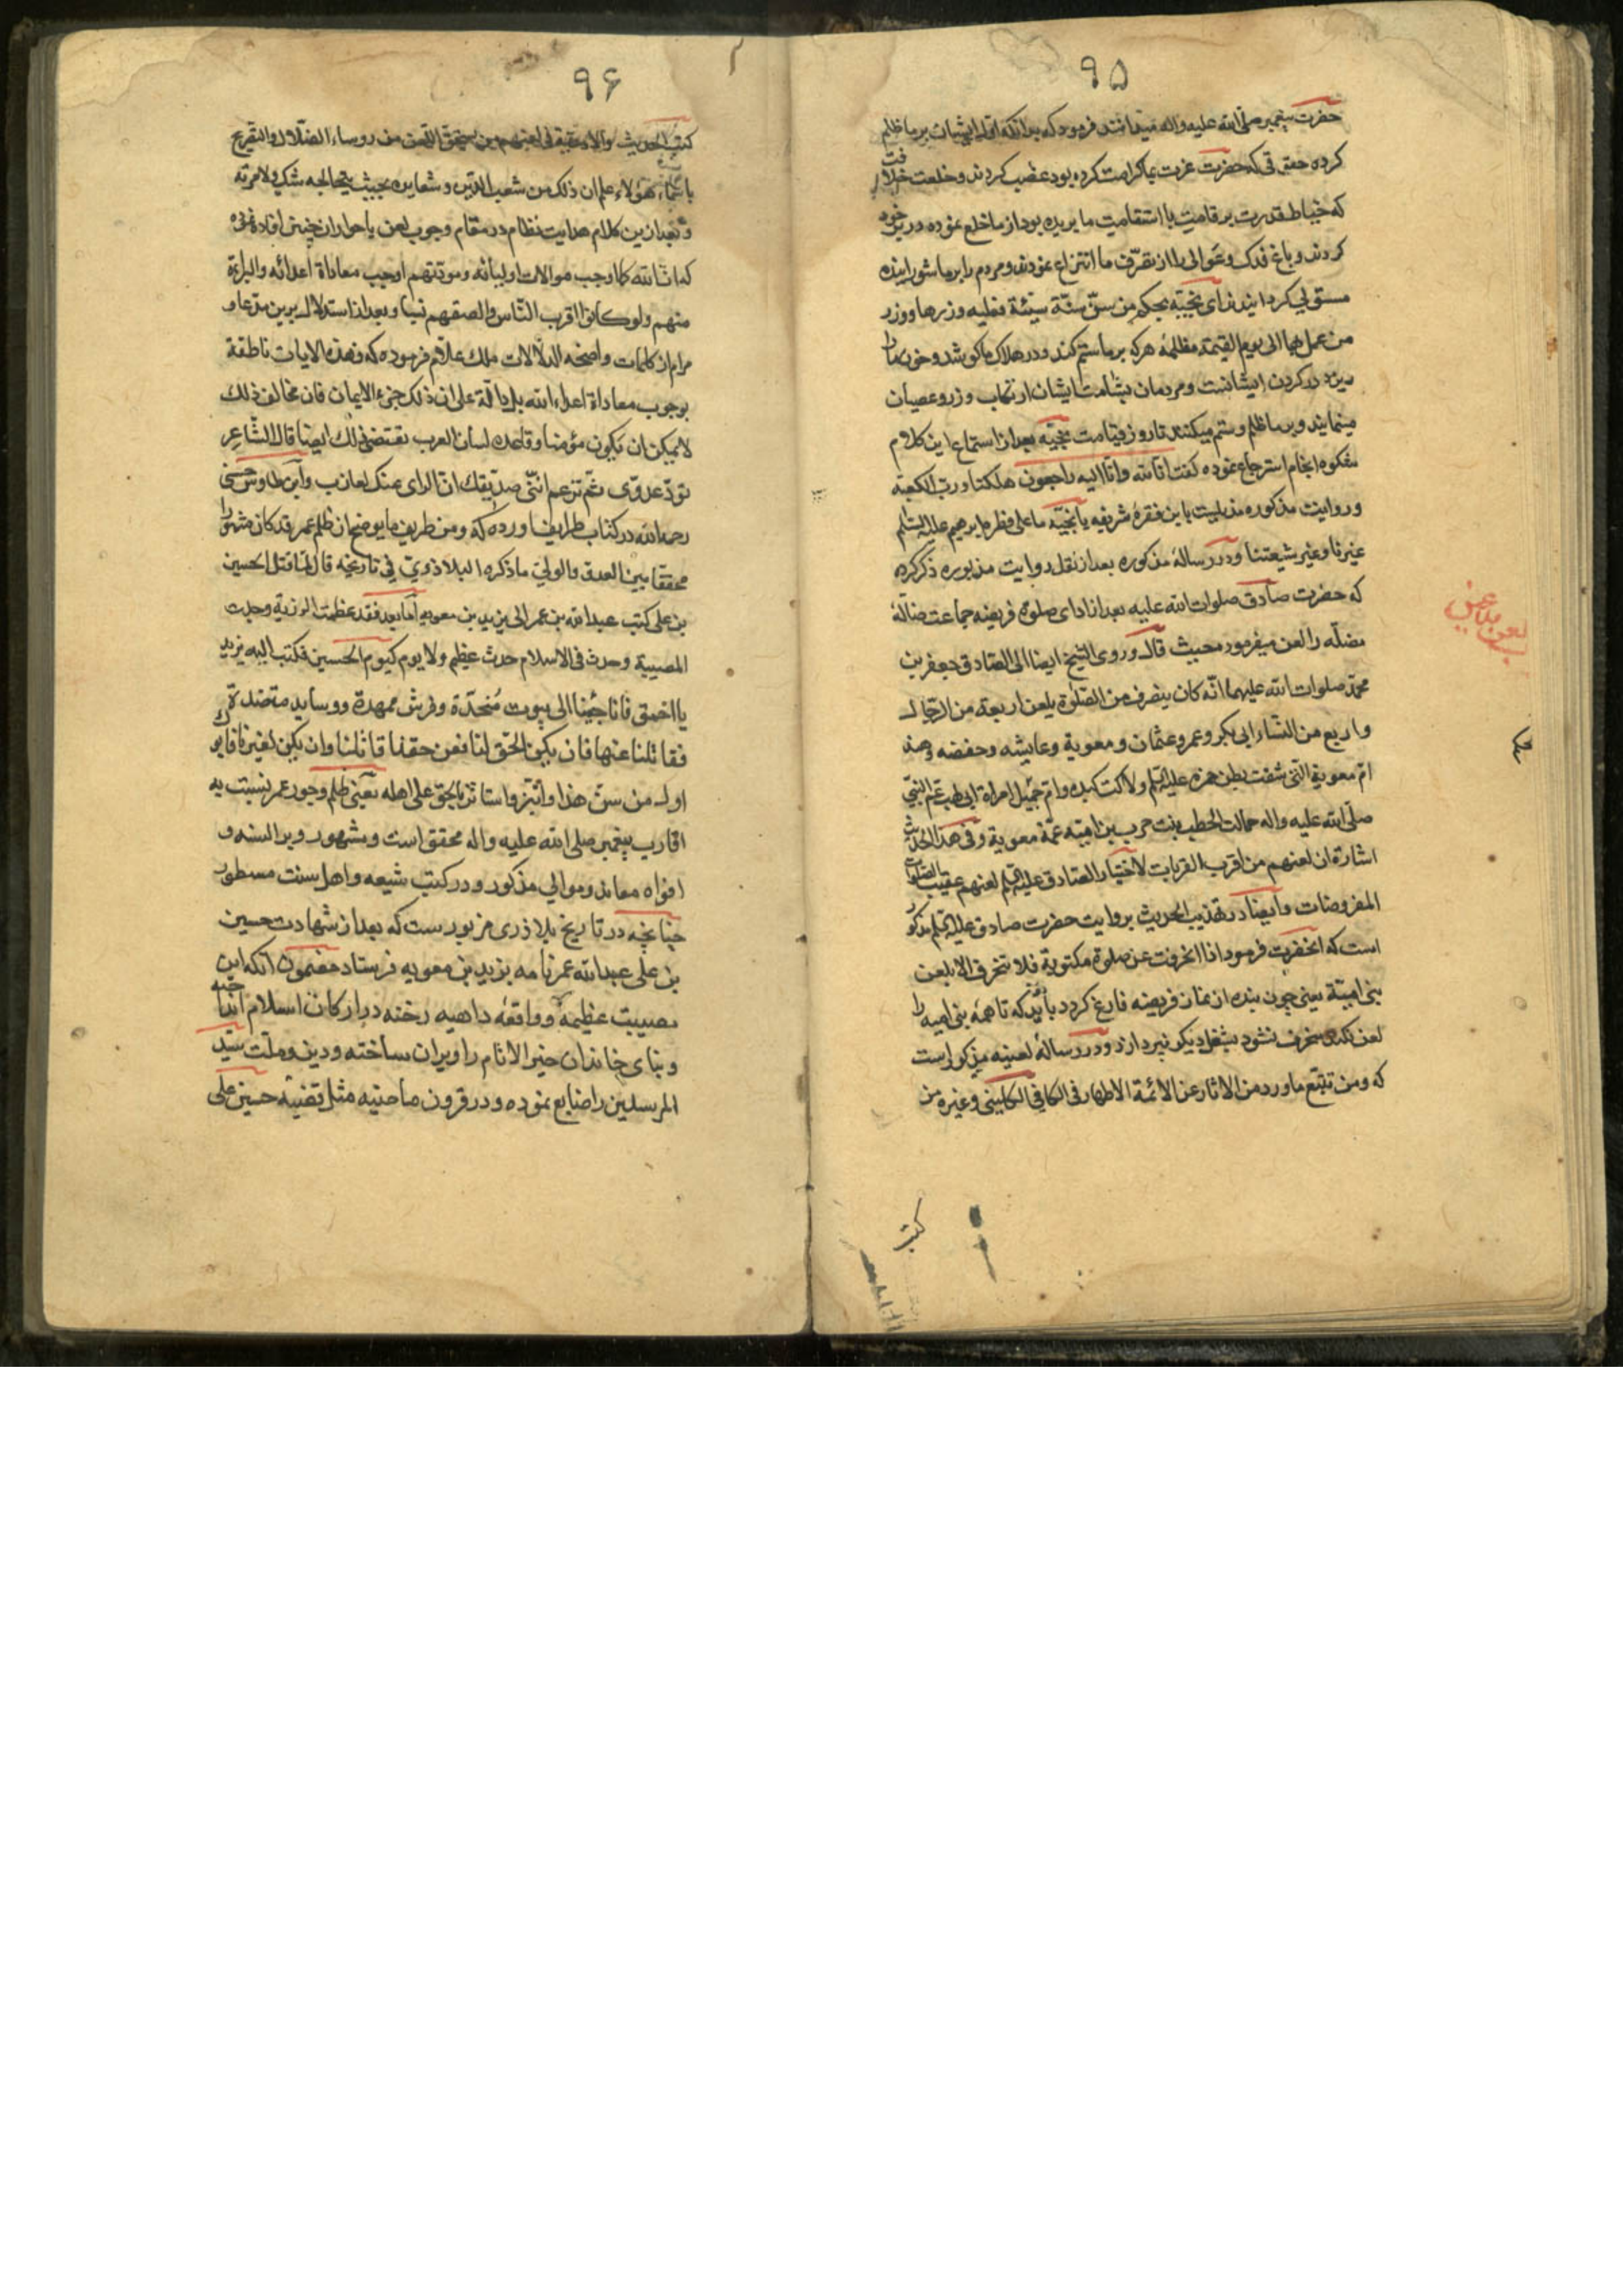 ۹۵
حضرت پیغمبر صلی الله علیه واله میدانند فرمود که بدانکه اول ایشان بر ما ظلم
کرده حقوقی که حضرت عزت بما کرامت کرده بود غصب کردند و خلعت خلافت
که خیاط قدرت بر قامت با استقامت ما بریده بود از ما خلع نموده در بر خود
کردند و باغ فدک و عوالی را از تصرف ما انتزاع نمودند و مردم را بر ما شورانیده
مستولی کردانیدند ای نجیه بحکم من سن سنة سیئة فعلیه وزرها و وزر
من عمل بها الی یوم القیمة مظلمه هرکه بر ما ستم کند و در هلاک ما کوشد و خون ما را
بریزد در کردن ایشانست و مردمان بشامت ایشان ارتکاب وزر و عصیان
مینمایند و بر ما ظلم و ستم میکنند تا روز قیامت نجیه بعد از استماع این کلام
شکوه انجام استرجاع نموده کفت انا لله وانا الیه راجعون هلکنا و رب الکعبة
و روایت مذکوره مذیلست باین فقره شریفه یا نجیه ما علی فطرة ابرهیم علیه السلم
غیرنا و غیر شیعتنا و در رساله مذکوره بعد از نقل روایت مزبوره ذکر کرده
که حضرت صادق صلوات الله علیه بعد از ادای صلوة فریضه جماعت ضاله
مضله را لعن میفرمود محیث قال وروی الشیخ ایضا الی الصادق جعفر بن
محمد صلوات الله علیهما انه کان ینصرف من الصلوة یلعن اربعة من الرجال
واربع من النساء ابی بکر وعمر وعثمان ومعویة وعایشه وحفصه وهند
ام معویة التی شقت بطن حمزه علیه السلم ولاکت کبده وام جمیل امراة ابی لهب عم النبی
صلی الله علیه واله حمالت الحطب بنت حرب بن امیه عمة معویة وفی هذا الحدیث
اشارة ان لعنهم من اقرب القربات لاختیار الصادق علیه السلم لعنهم عقیب الصلوات
المفروضات وایضا در تهذیب الحدیث بروایت حضرت صادق علیه السلم مذکور
است که انحضرت فرمود اذا انحرفت عن صلوة مکتوبة فلا تنحرف الا بلعن
بنی امیة یعنی چون بنده از نماز فریضه فارغ کردد باید که تا همه بنی امیه را
لعن نکند منحرف نشود بشغل دیکر نپردازد و در رساله لعنیه مذکور است
که ومن تتبع ما ورد من الاثار عن الائمة الاطهار فی الکافی الکلینی وغیره من
لعن ملاعین
کتب
۹۶
کتب الحدیث والادعیة فی لعنهم من یستحق اللعن من روساء الضلال والتقریح
باسماء هؤلاء علم ان ذلک من شعب الدین وشعایره بحیث یتخالجه شک ولا مریة
و بعد از ین کلام هدایت نظام در مقام وجوب لعن یا حواران چنین افاده نموده
که ان الله کما اوجب موالات اولیائه ومودتهم اوجب معاداة اعدائه والبراءة
منهم ولو کانوا اقرب الناس والصقهم نسبا وبعد از استدلال برین مدعا و
مرام از کلمات واضحه الدلالات ملک علام فرموده که فهذه الایات ناطقة
بوجوب معاداة اعداء الله بل دالة علی ان ذلک جزء الایمان فان مخالف ذلک
لا یمکن ان یکون مؤمنا وقاعدة لسان العرب تقتضی ذلک ایضا قال الشاعر
تود عدوی ثم تزعم اننی صدیقک ان الرای عنک لعازب وابن طاوس حسنی
رحمه الله در کتاب طرایف آورده که ومن طریف ما یوضح ان ظلم عمر قد کان مشهورا
محققا بین العدو والولی ما ذکره البلاذری فی تاریخه قال لما قتل الحسین
بن علی کتب عبدالله بن عمر الی یزید بن معویه اما بعد فقد عظمت الرزیة وجلت
المصیبة وحدث فی الاسلام حدث عظیم ولا یوم کیوم الحسین فکتب الیه یزید
یا احمق فانا جئنا الی بیوت منجدة وفرش ممهدة ووساید منضدة
فقاتلنا عنها فان یکن الحق لنا فعن حقنا قاتلنا وان یکن لغیرنا فابوک
اول من سن هذا وابتز واستاثر بالحق علی اهله یعنی ظلم وجور عمر نسبت به
اقارب پیغمبر صلی الله علیه واله محقق است ومشهور و بر السنه و
افواه معاند وموالی مذکور ودر کتب شیعه واهل سنت مسطور
چنانچه در تاریخ بلاذری مزبورست که بعد از شهادت حسین
بن علی عبدالله عمر نامه بیزید بن معویه فرستاد مضمون آنکه این
مصیبت عظیمه وواقعه داهیه رخنه در ارکان اسلام انداخته
وبنای خاندان خیر الانام را ویران ساخته ودین وملت سید
المرسلین را ضایع نموده ودر قرون ماضیه مثل قضیه حسین علی